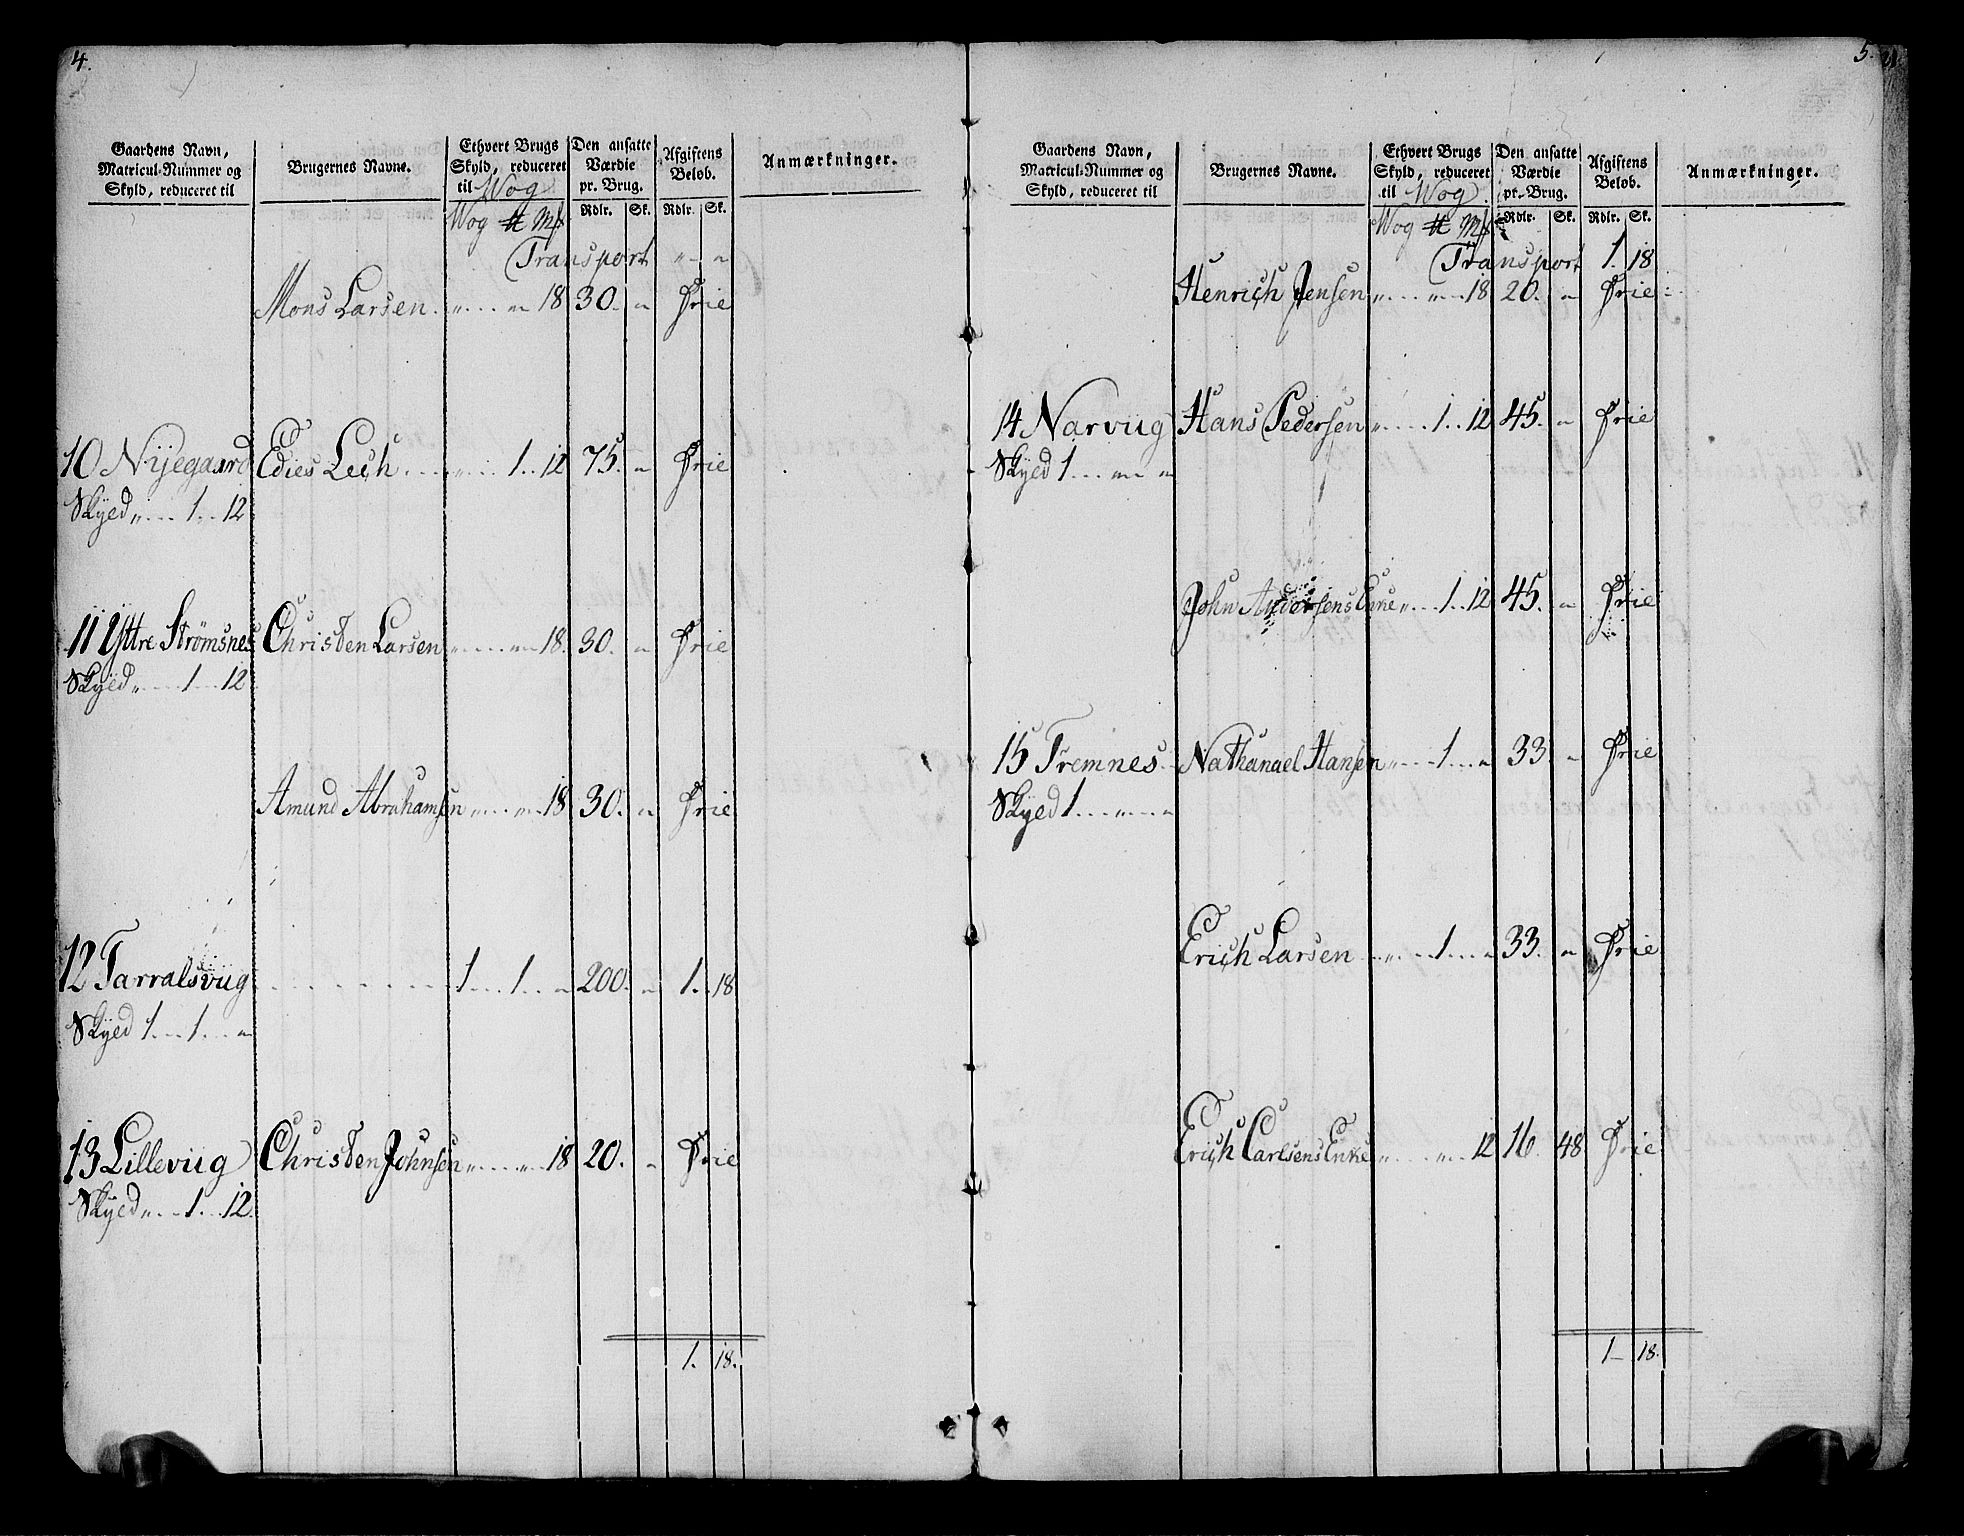 4.
Gaardens Navn, Matricul-Nummer og Skyld, reduceret til
Brugernes Navne.
Ethvert Brugs Skyld, reduceret til Wog
Den ansatte Værdie pr. Brug.
Afgiftens Beløb.
Anmærkninger.
Wog ℔ Mk Rdlr. Sk. Rdlr. Sk.
Transport " "
Mons Larsen. " " 18 30. " Frie
10 Nÿegaard Edies Lech " 1 12 75. " Frie
Skÿed " 1 12
11 Yttre Strømsnes Christen Larsen " " 18. 30. " Frie
Skÿed " 1 12
Amund Abrahamsen " " 18 30. " Frie
12 Tarralsviig 1 1 " 200. " 1 18
Skÿed 1 1 "
13 Lilleviig Christen Johnsen " " 18 20. " Frie
Skÿed " 1 12.
1. 18.
5.
Gaardens Navn, Matricul-Nummer og Skyld, reduceret til
Brugernes Navne.
Ethvert Brugs Skyld, reduceret til Wog.
Den ansatte Værdie pr. Brug.
Afgiftens Beløb.
Anmærkninger.
Wog ℔ Mk Rdlr. Sk. Rdlr. Sk.
Transport 1. 18
Henrich Jensen " " 18 20. " Frie
14 Narviig Hans Pedersen " 1 12 45. " Frie
Skÿed 1 " "
John Andersens Enke " 1 12 45. " Frie
15 Tremnes Nathanael Hansen " 1 " 33 " Frie
Skÿed 1 " "
Erich Larsen " 1 " 33. " Frie
Erich Carlsens Enke " " 12 16. 48 Frie
1 18.